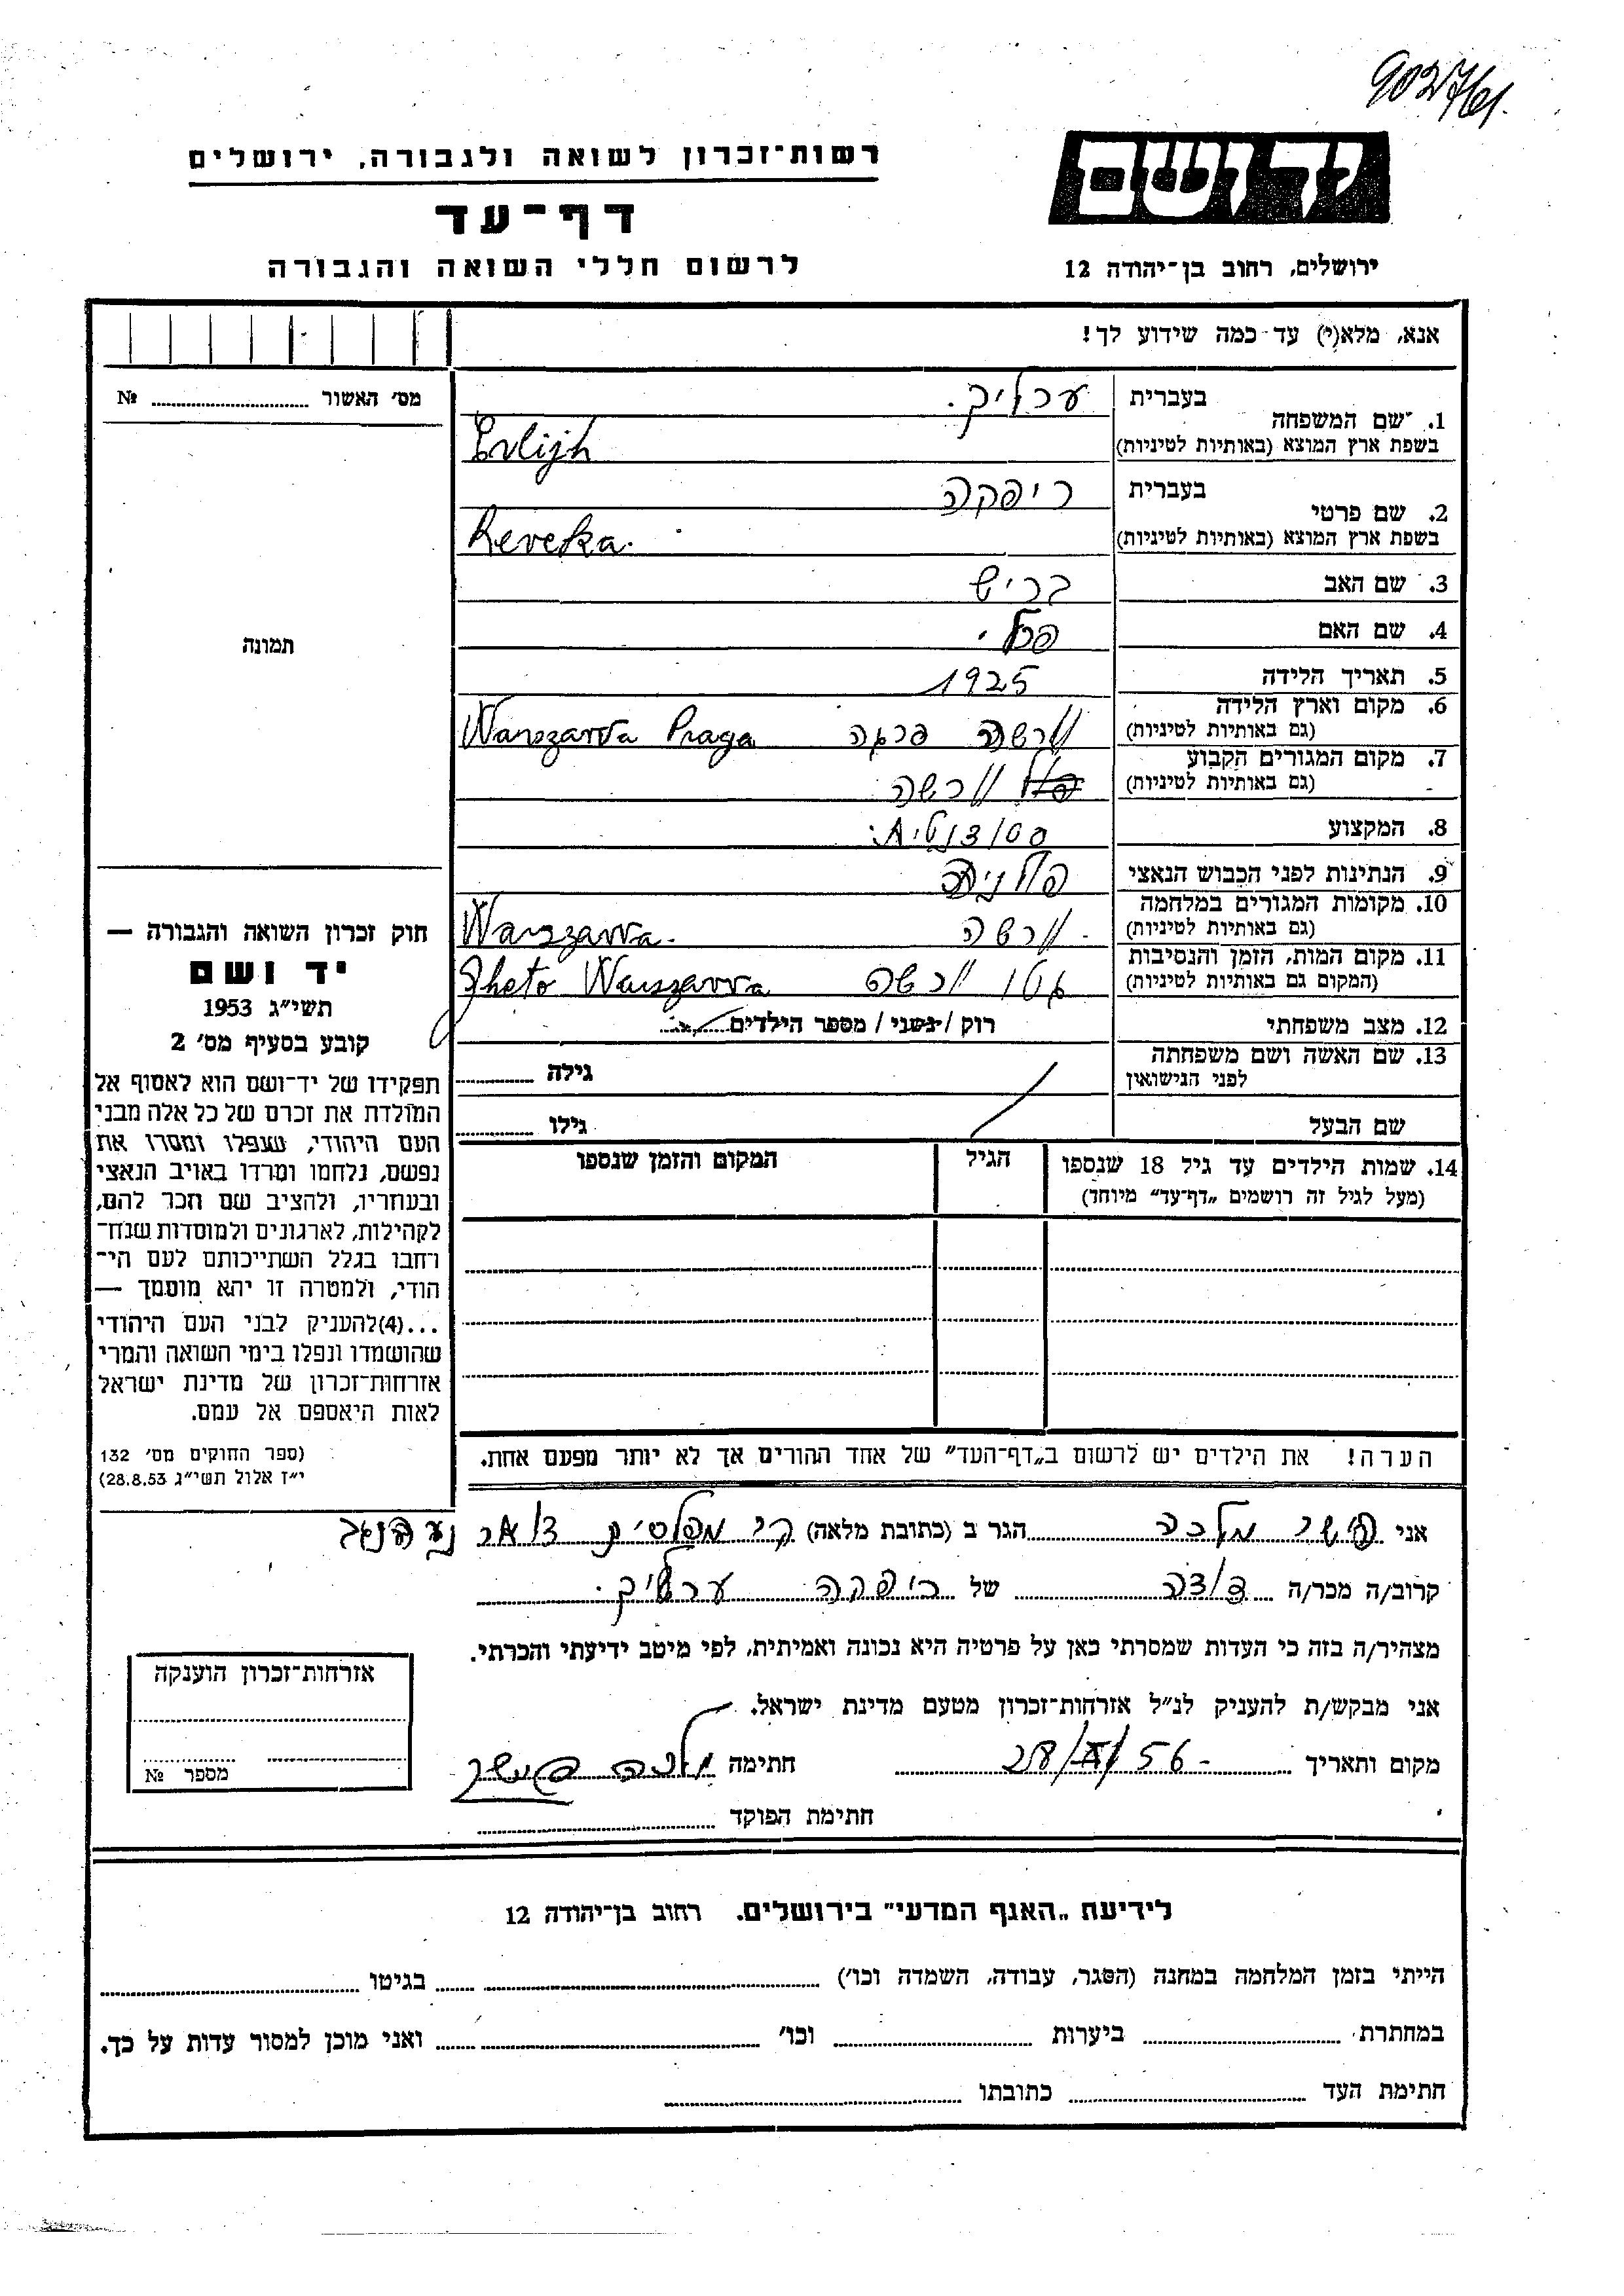 90276/61.
רשות־זכרון לשואה ולגבורה, ירושלים
יד ושם
דף־עד
לרשום חללי השואה והגבורה
ירושלים, רחוב בן־יהודה 12
אנא, מלא(י) עד כמה שידוע לך!
מס׳ האשור № 
1. שם המשפחה
בעברית ערליך.
בשפת ארץ המוצא (באותיות לטיניות) Erlijh
2. שם פרטי
בעברית ריפקה
בשפת ארץ המוצא (באותיות לטיניות) Reveka.
3. שם האב בריש
4. שם האם פרל.
תמונה
5. תאריך הלידה 1925
6. מקום וארץ הלידה
(גם באותיות לטיניות) וורשה פרגה Warszawa Praga
7. מקום המגורים הקבוע
(גם באותיות לטיניות) וורשה
8. המקצוע סטודנטית.
9. הנתינות לפני הכבוש הנאצי פולנית
10. מקומות המגורים במלחמה
(גם באותיות לטיניות) וורשה Warszawa.
11. מקום המות, הזמן והנסיבות
(המקום גם באותיות לטיניות) גטו וורשה Gheto Warszawa
12. מצב משפחתי רוק / נשוי / מספר הילדים
13. שם האשה ושם משפחתה
לפני הנישואין
גילה
שם הבעל גילו
14. שמות הילדים עד גיל 18 שנספו
(מעל לגיל זה רושמים „דף־עד״ מיוחד)
הגיל
המקום והזמן שנספו
חוק זכרון השואה והגבורה —
יד ושם
תשי״ג 1953
קובע בסעיף מס׳ 2
תפקידו של יד־ושם הוא לאסוף אל
המולדת את זכרם של כל אלה מבני
העם היהודי, שנפלו ומסרו את
נפשם, נלחמו ומרדו באויב הנאצי
ובעוזריו, ולהציב שם וזכר להם,
לקהילות, לארגונים ולמוסדות שנח־
רבו בגלל השתייכותם לעם הי־
הודי, ולמטרה זו יהא מוסמך —
...(4)להעניק לבני העם היהודי
שהושמדו ונפלו בימי השואה והמרי
אזרחות־זכרון של מדינת ישראל
לאות היאספם אל עמם.
(ספר החוקים מס׳ 132
י״ז אלול תשי״ג 28.8.53)
הערה! את הילדים יש לרשום ב„דף־העד״ של אחד ההורים אך לא יותר מפעם אחת.
אני מלכה הגר ב (כתובת מלאה)
קרוב/ה מכר/ה דודה של ריפקה ערליך.
מצהיר/ה בזה כי העדות שמסרתי כאן על פרטיה היא נכונה ואמיתית, לפי מיטב ידיעתי והכרתי.
אני מבקש/ת להעניק לנ״ל אזרחות־זכרון מטעם מדינת ישראל.
מקום ותאריך 56 חתימה מלכה
חתימת הפוקד
אזרחות־זכרון הוענקה
מספר №
לידיעת „האגף המדעי״ בירושלים. רחוב בן־יהודה 12
הייתי בזמן המלחמה במחנה (הסגר, עבודה, השמדה וכו׳) בגיטו
במחתרת ביערות וכו׳ ואני מוכן למסור עדות על כך.
חתימת העד כתובתו